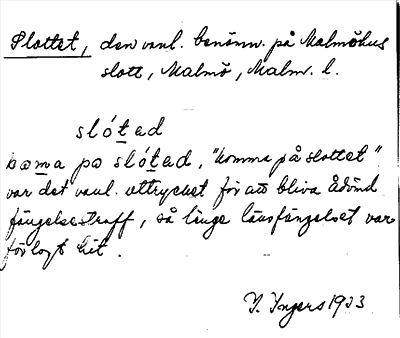 Slottet, den vanl. benämn. på Malmöhus
slott, Malmö, Malm. l.
slótad
koma po slótad, "komma på slottet"
var det vanl. uttrycket för att bliva ådömd
fängelsestraff, så länge länsfängelset var
förlagt hit.
I. Ingers 1933